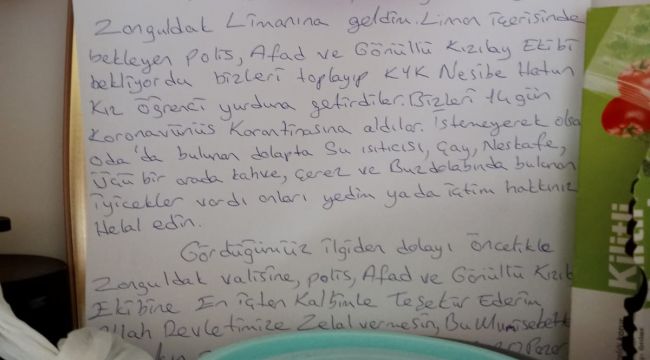 Zonguldak Limanına geldim. Liman içerisinde
bekleyen Polis, Afad ve Gönüllü Kızılay Ekibi
bekliyordu bizleri toplayıp KYK Nesibe Hatun
Kız öğrenci yurduna getirdiler. Bizleri 14 gün
Koronavürüüs Karantinasına aldılar. İstemeyerek olsa
Oda'da bulunan dolapta Su ısıtıcısı, çay, Neskafe,
Üçü bir arada kahve, çerez ve Buzdolabında bulunan
iyicekler vardı onları yedim yada içtim hakkınız
Helal edin.
Gördüğümüz ilgiden dolayı öncelikle
Zonguldak Valisine, polis, Afad ve Gönüllü Kızıl
Ekibine En içten Kalbimle Teşekür Ederim
Allah Devletimize Zelal vermesin, Bu
Kilitli